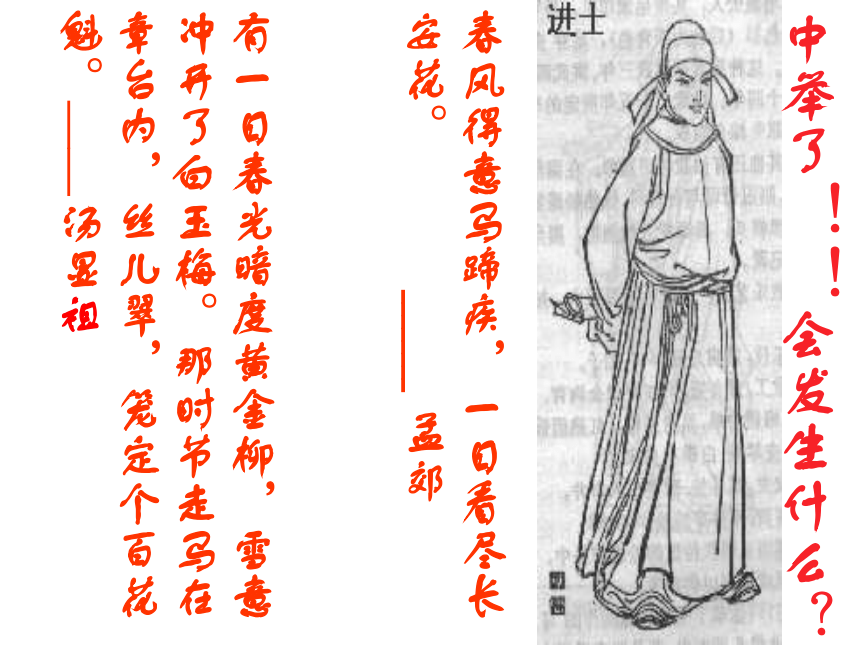 中举了！！会发生什么？
进士
春风得意马蹄疾，一日看尽长
安花。
——孟郊
有一日春光暗度黄金柳，雪意
冲开了白玉梅。那时节走马在
章台内，丝儿翠，笼定个百花
魁。——汤显祖